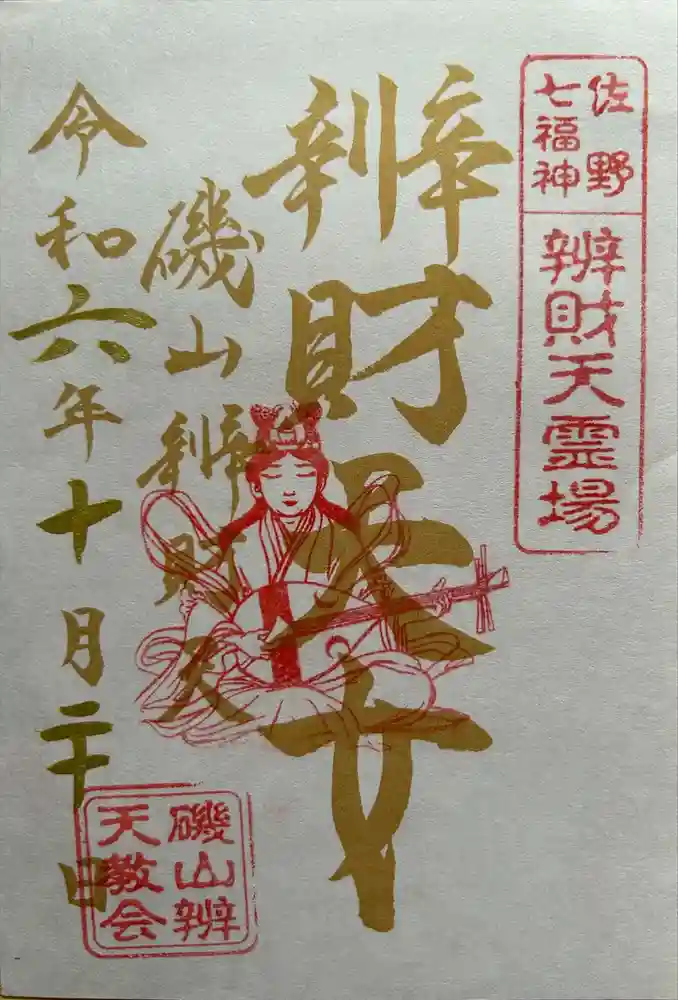 佐野
七福神
辨財天霊場
辨財天
磯山辨財天
令和六年十月二十日
磯山辨
天教会